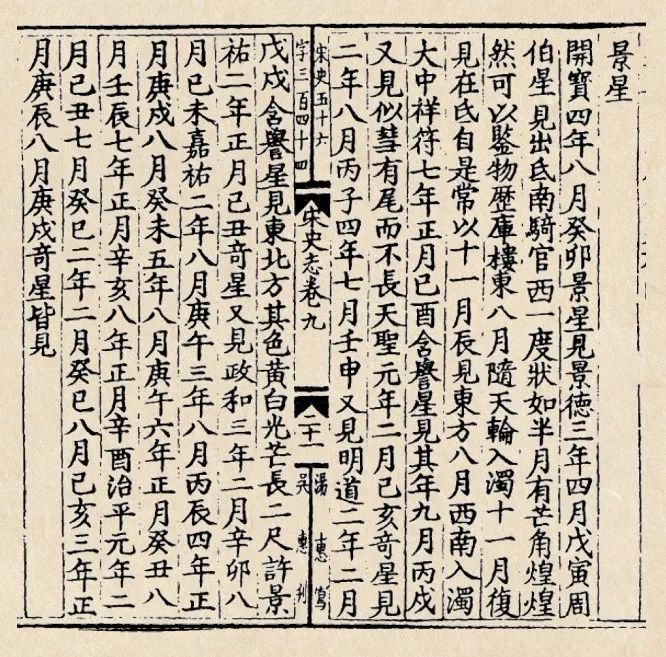 景星
開寶四年八月癸卯景星見景德三年四月戊寅周
伯星見出氐南騎官西一度狀如半月有芒角煌煌
然可以監物歷庫樓東八月隨天輪入濁十一月復
見在氐自是常以十一月辰見東方八月西南入濁
大中祥符七年正月己酉含譽星見其年九月丙戌
又見似彗有尾而不長天聖元年二月己亥奇星見
二年八月丙子四年七月壬申又見明道二年二月
宋史五十六
字三百四十四
宋史志卷九
二十一
湯惠寫
吳惠刊
戊戌含譽星見東北方其色黃白光芒長二尺許景
祐二年正月己丑奇星又見政和三年二月辛卯八
月己未嘉祐二年八月庚午三年八月丙辰四年正
月庚戌八月癸未五年八月庚午六年正月癸丑八
月壬辰七年正月辛亥八年正月辛酉治平元年二
月己丑七月癸巳二年二月癸巳八月己亥三年正
月庚辰八月庚戌奇星皆見